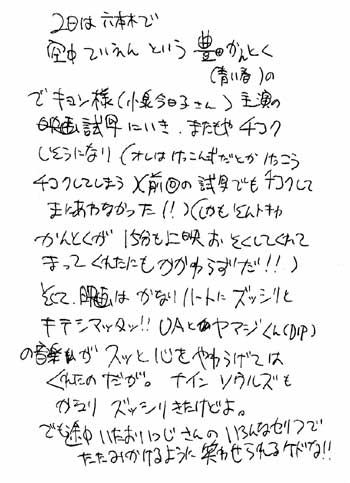 2日は六本木で
空中ていえん という 豊田かんとく
(青い春)の
で キョン様(小泉今日子さん)主演の
映画試写にいき、またもや チコク
しそうになり(オレは けっこんずだとか けっこう
チコクしてしまう)(前回の試写でもチコクして
まにあわなかった(!)(しかもそんトキハ
かんとくが 15分も上映おそくしてくれて
まって くれたにもかかわらずだ!!)
そして、映画は かなりハートにズッシリと
キテシマッタッ!! UAとかヤマジくん(DIP)
の音楽が スッと心をやわらげては
くれたのだが。ナイン ソウルズも
かなり ズッシリきたけどよ。
でも途中 いたおいつじさんの いろんなセリフで
たたみかけるように 笑わせられるケドな!!